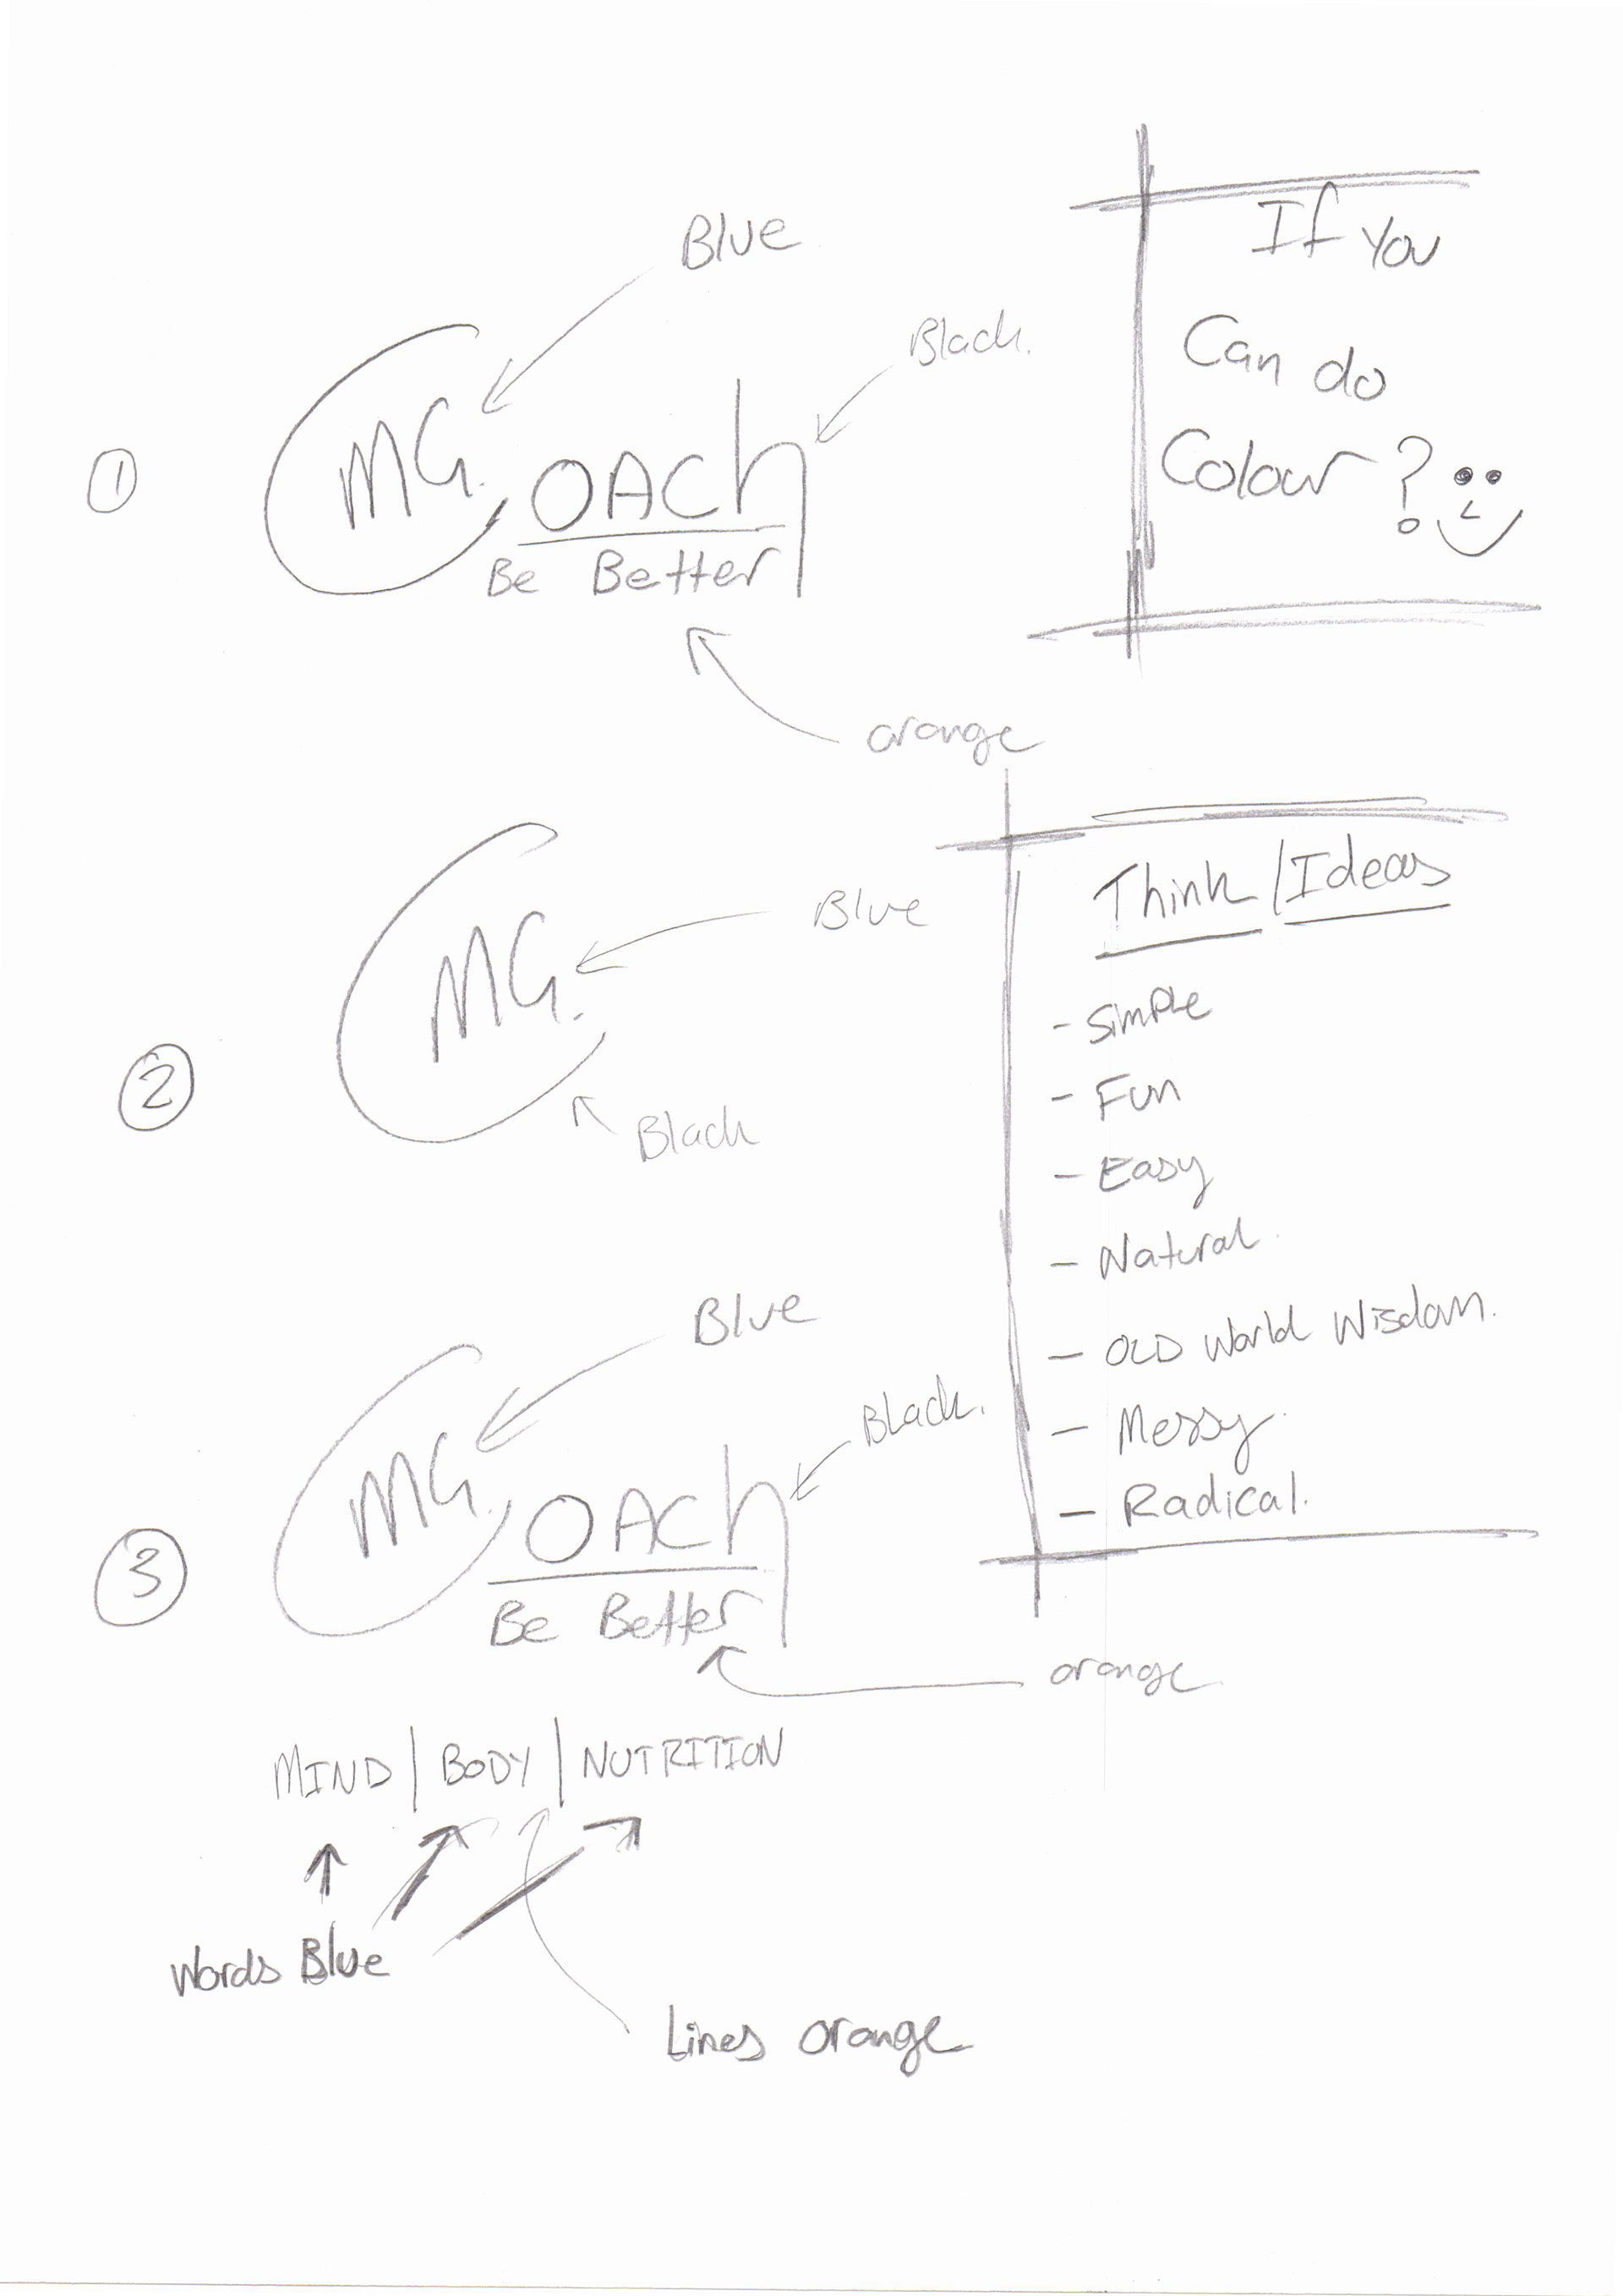 Blue
If You
Black.
Can do
1
MG. OACh
Colour ?
Be Better
orange
Think / Ideas
Blue
MG.
- Simple
2
- Fun
Black
- Easy
- Natural.
Blue
- OLD World Wisdom.
Black.
- Messy.
MG. OACh
- Radical.
3
Be Better
orange
MIND | BODY | NUTRITION
Words Blue
Lines orange